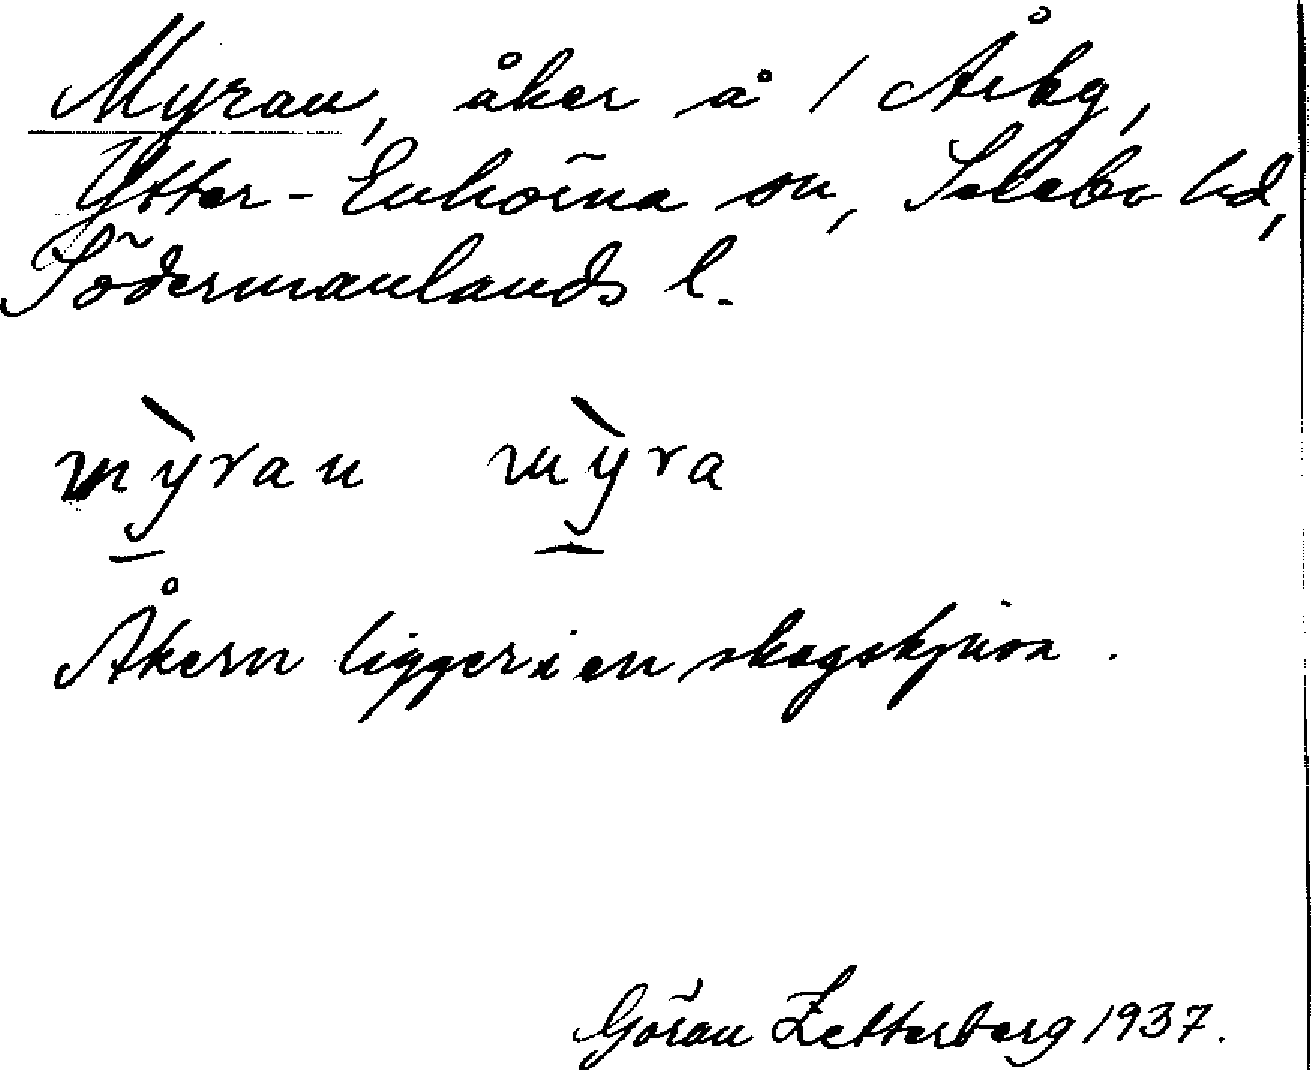 Myran, åker å 1 Årby,
Ytter-Enhörna sn, Selebo hd,
Södermanlands l.
mỳran mỳra
Åkern ligger i en skogskjusa.
Göran Zetterberg 1937.